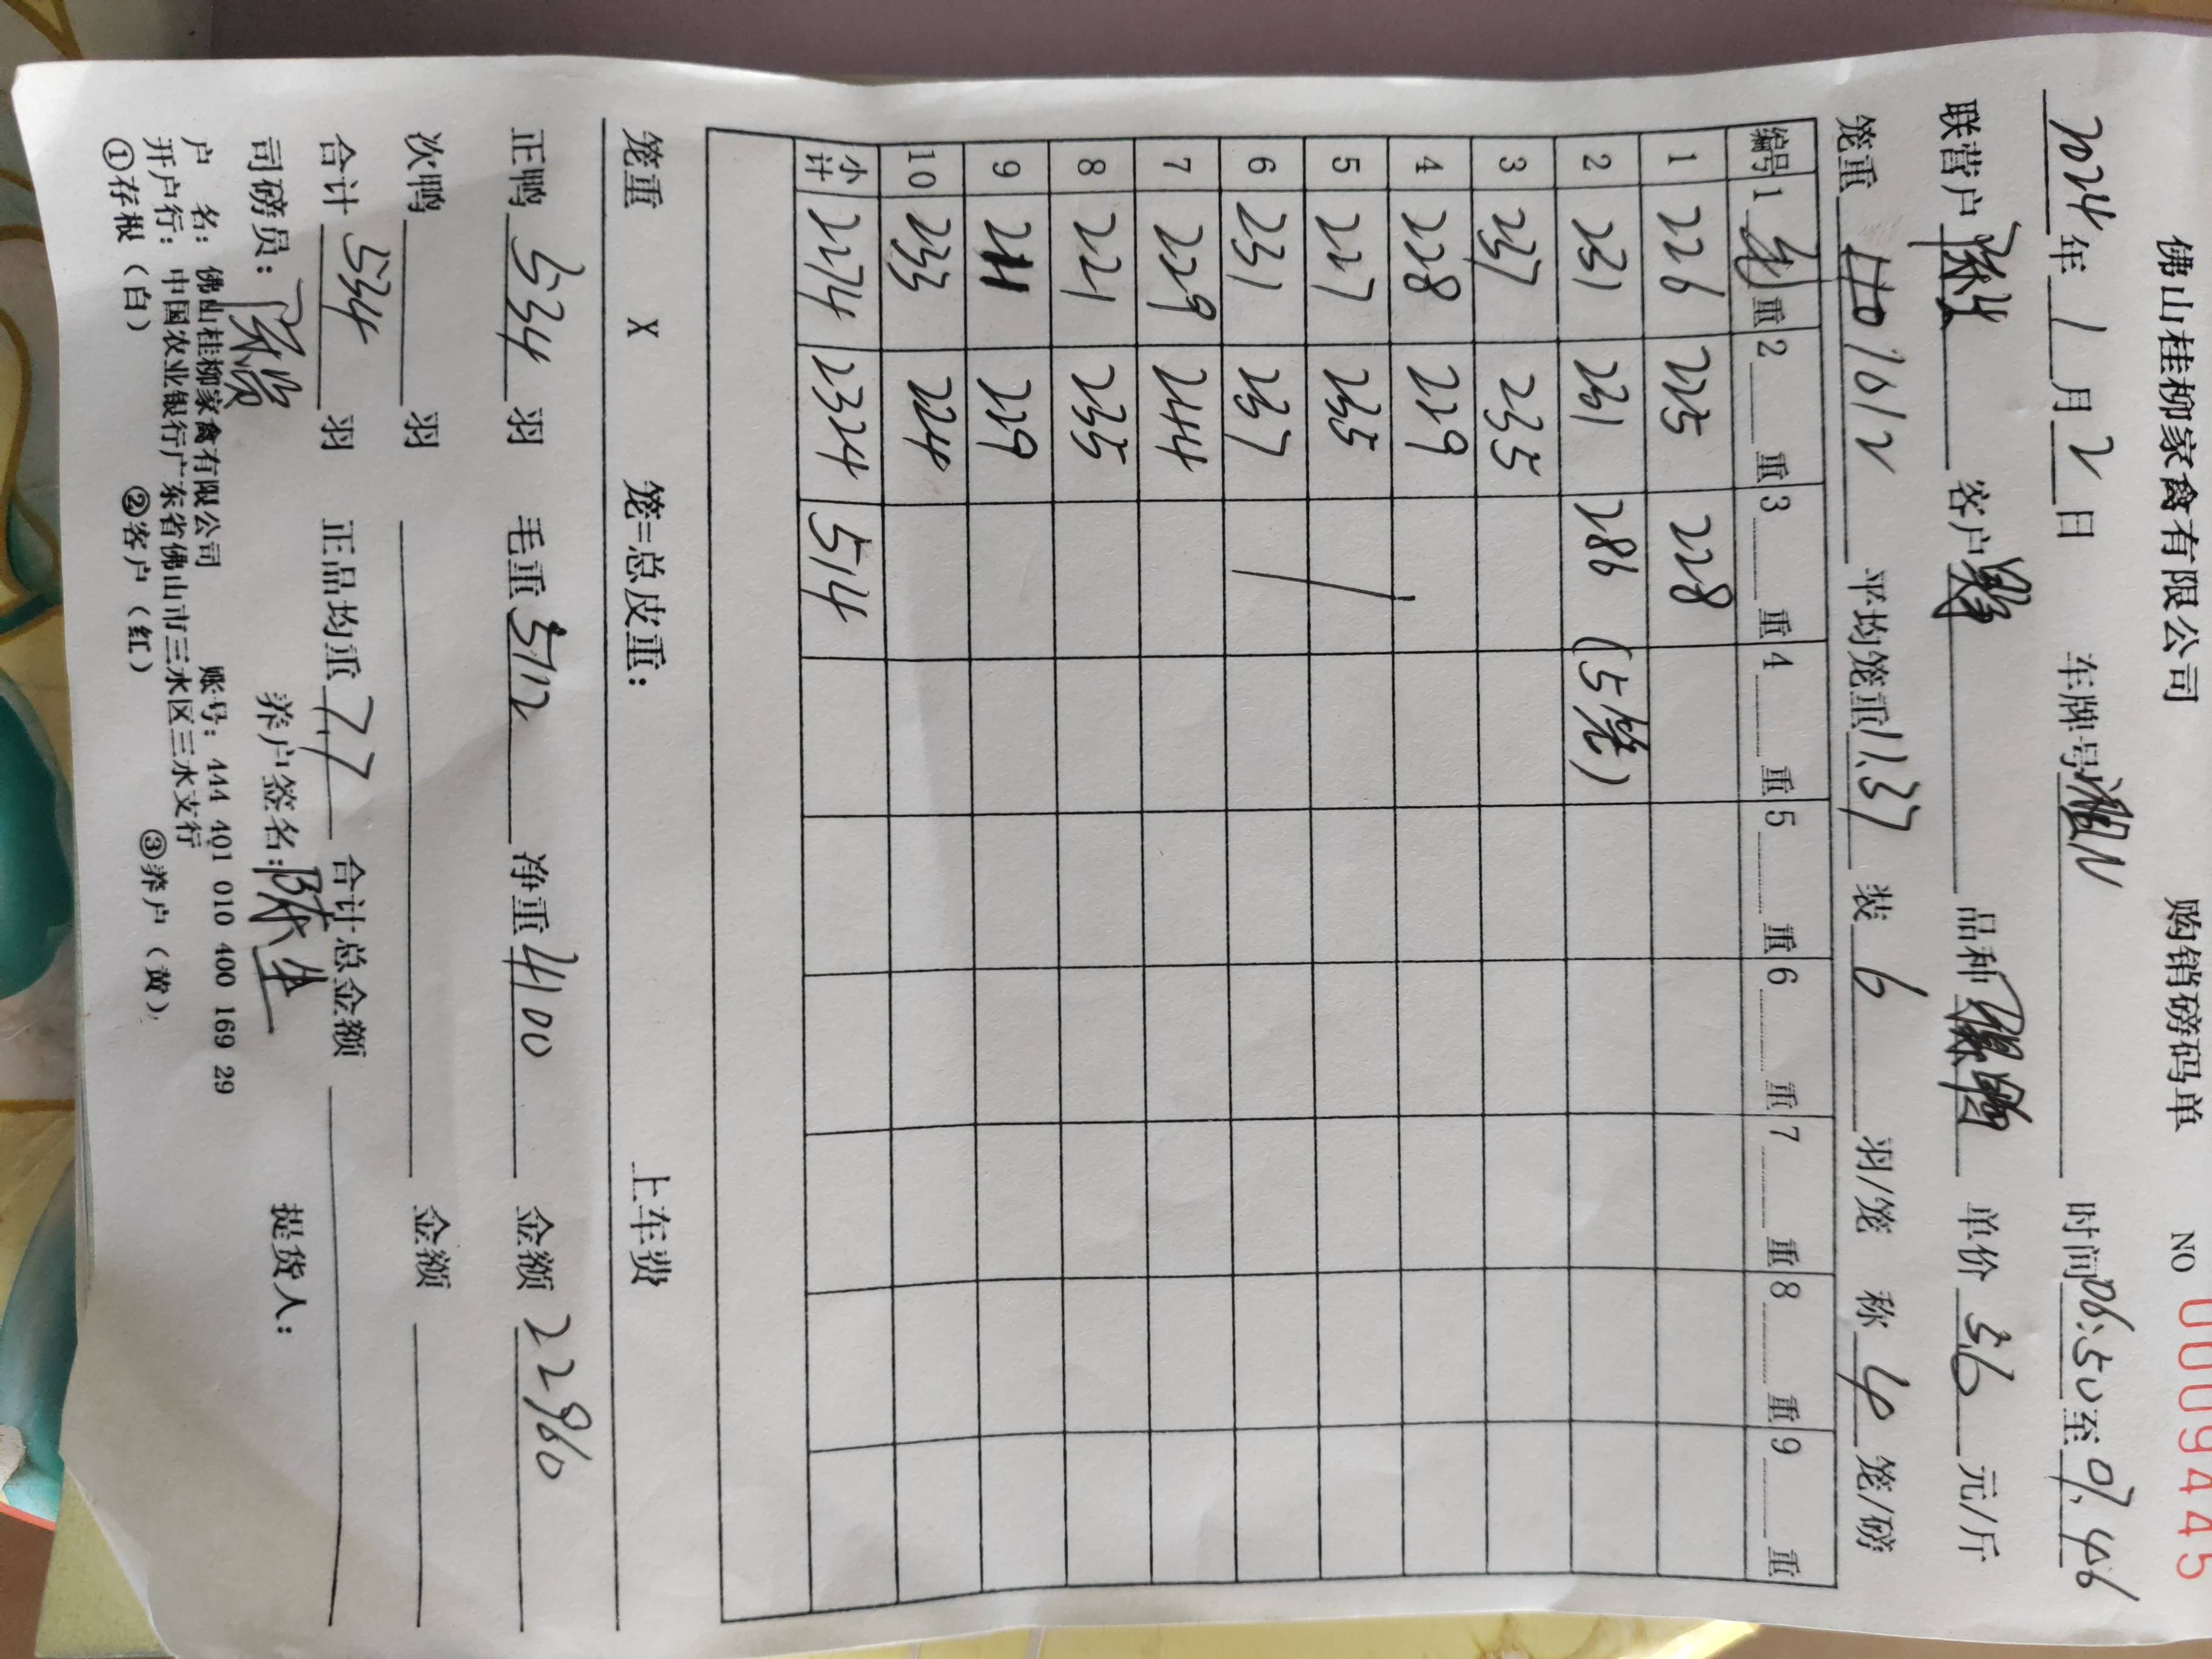 佛山桂柳家禽有限公司 购销磅码单 NO 0009445
2024年1月2日 车牌号 时间06:50至07.46
联营户 客户 品种 单价5.6元/斤
笼重 1012 平均笼重11.37 装6羽/笼 称4笼/磅
编号 1毛重 2重 3重 4重 5重 6重 7重 8重 9重
1 226 225 228
2 231 231 286 (5笼)
3 237 235
4 228 229
5 227 235
6 231 237
7 229 244
8 221 235
9 211 229
10 233 224
小计 2274 2324 514
笼重 X 笼=总皮重： 上车费
正鸭534羽 毛重5112 净重4100 金额22960
次鸭 羽 金额
合计534羽 正品均重7.7 合计总金额
司磅员： 养户签名:陈生 提货人：
户 名：佛山桂柳家禽有限公司 账号：444 401 010 400 169 29
开户行：中国农业银行广东省佛山市三水区三水支行
①存根（白） ②客户（红） ③养户（黄）